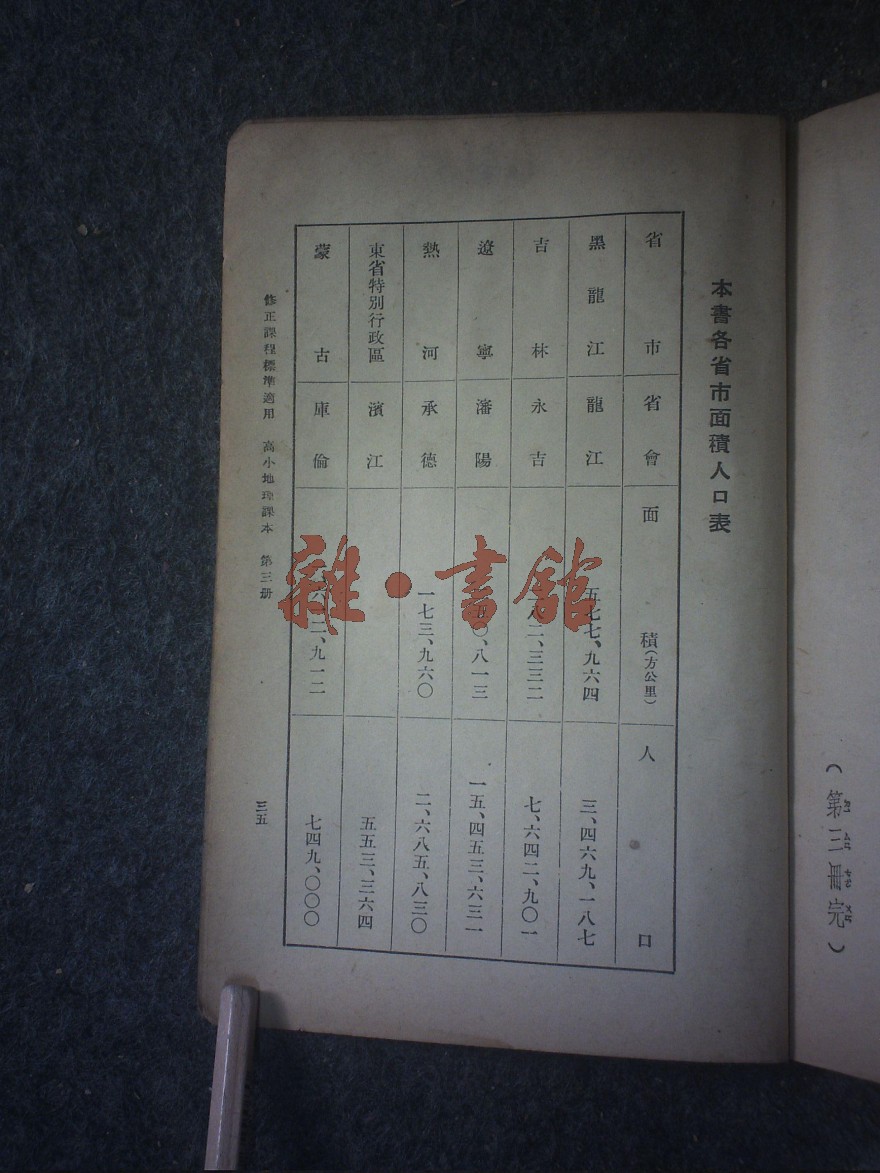 （第三冊完）
本書各省市面積人口表
省市 省會 面積（方公里） 人口
黑龍江 龍江 五七七、九六四 三、四六九、一八七
吉林 永吉 八二、三三二 七、六四二、九〇一
遼寧 瀋陽 五〇、八一三 一五、四五三、六三一
熱河 承德 一七三、九六〇 二、六八五、八三〇
東省特別行政區 濱江 五五三、三六四
蒙古 庫倫 二、九一二 七四九、〇〇〇
修正課程標準適用 高小地理課本 第三册
三五
雜·書館